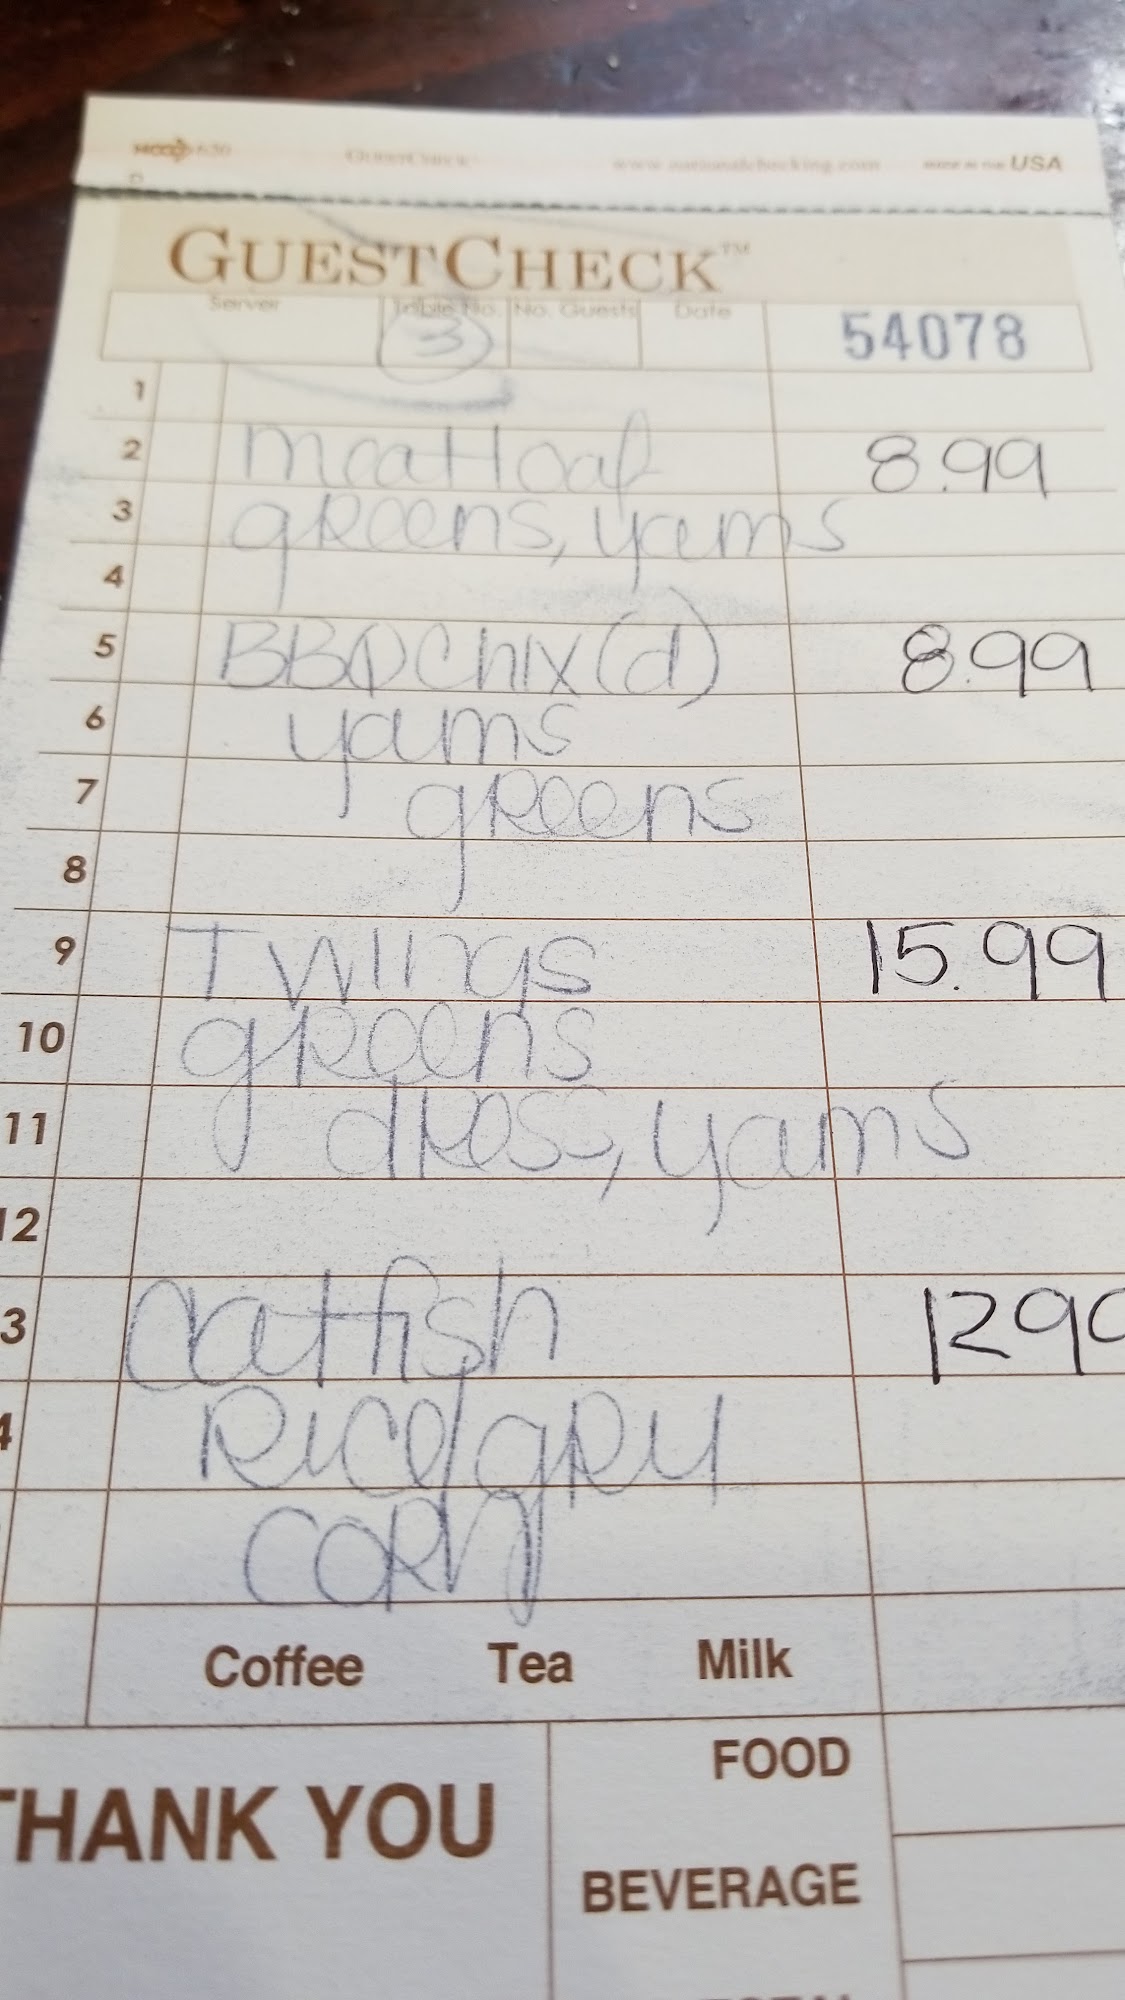 NCCO 636 GUESTCHECK™ www.nationalchecking.com MADE IN THE USA
GUESTCHECK™
Server Table No. No. Guests Date 54078
3
1
2 meatloaf 8.99
3 greens, yams
4
5 BBQ Chix (d) 8.99
6 yams
7 greens
8
9 T Wings 15.99
10 greens
11 dress, yams
12
3 Catfish 1299
4 Rice/gry
corn
Coffee Tea Milk
THANK YOU
FOOD
BEVERAGE
TOTAL